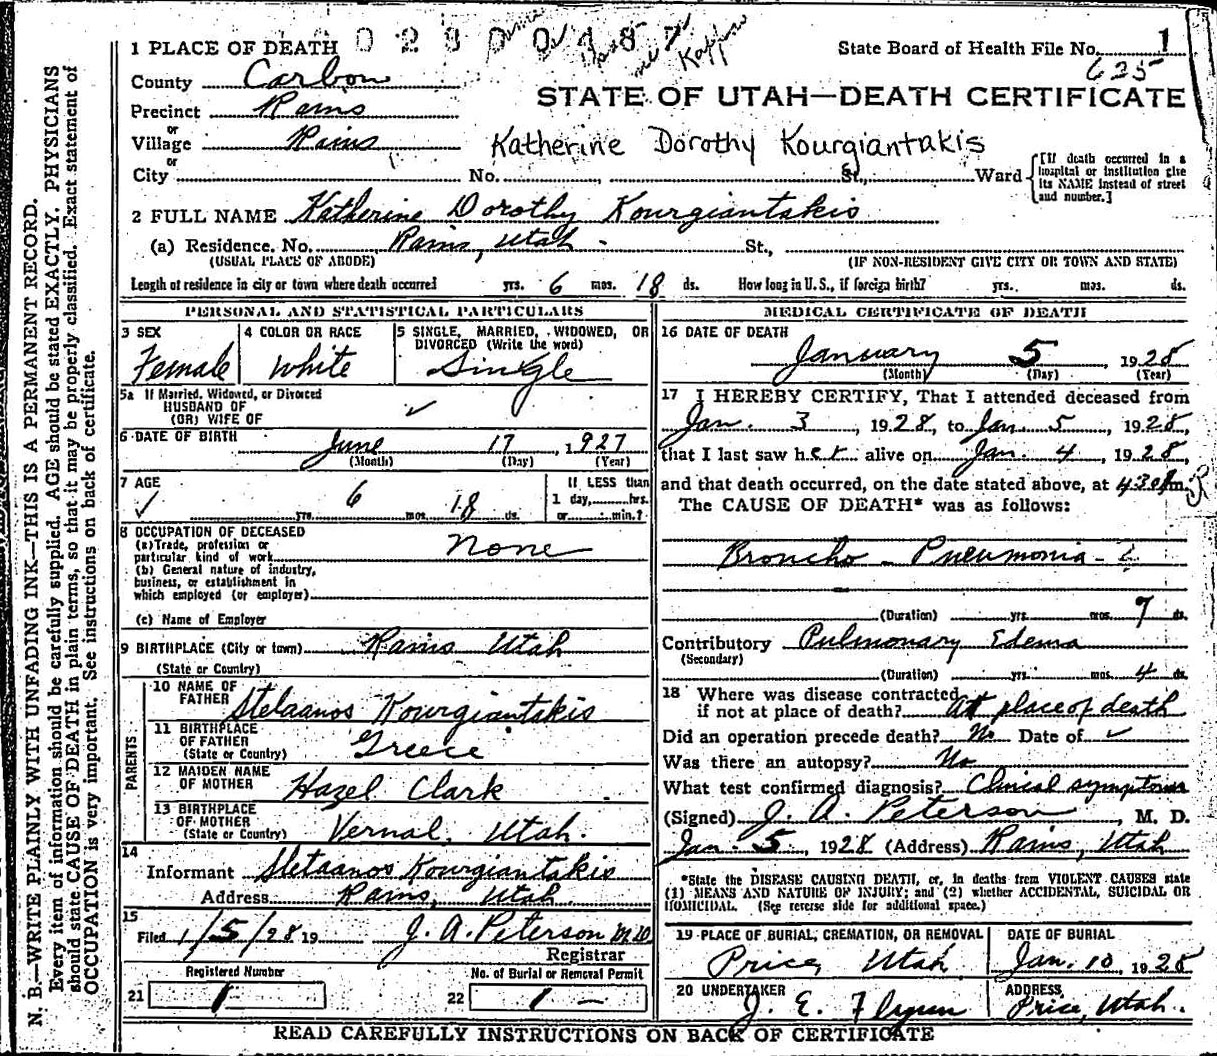 0 2 8 0 0 4 8 7
1 PLACE OF DEATH
State Board of Health File No. 1
625
County Carbon
STATE OF UTAH—DEATH CERTIFICATE
Precinct Rains
or
Village Rains
Katherine Dorothy Kourgiantakis
or
City No. , St., Ward
[If death occurred in a hospital or institution give its NAME instead of street and number.]
2 FULL NAME Katherine Dorothy Kourgiantakis
(a) Residence. No. Rains, Utah - St.,
(USUAL PLACE OF ABODE) (IF NON-RESIDENT GIVE CITY OR TOWN AND STATE)
Length of residence in city or town where death occurred yrs. 6 mos. 18 ds. How long in U.S., if foreign birth? yrs. mos. ds.
PERSONAL AND STATISTICAL PARTICULARS
3 SEX 4 COLOR OR RACE 5 SINGLE, MARRIED, WIDOWED, OR
DIVORCED (Write the word)
Female White Single
5a If Married, Widowed, or Divorced
HUSBAND OF
(OR) WIFE OF ✓
6 DATE OF BIRTH June 17, 1927
(Month) (Day) (Year)
7 AGE If LESS than
✓ yrs. 6 mos. 18 ds. 1 day, hrs.
or min.?
8 OCCUPATION OF DECEASED
(a) Trade, profession or
particular kind of work none
(b) General nature of industry,
business, or establishment in
which employed (or employer)
(c) Name of Employer
9 BIRTHPLACE (City or town) Rains Utah
(State or Country)
PARENTS
10 NAME OF
FATHER Stelaanos Kourgiantakis
11 BIRTHPLACE
OF FATHER
(State or Country) Greece
12 MAIDEN NAME
OF MOTHER Hazel Clark
13 BIRTHPLACE
OF MOTHER
(State or Country) Vernal, Utah.
14
Informant Stelaanos Kourgiantakis
Address Rains, Utah.
15
Filed 1/5/28 19 J. A. Peterson MD
Registrar
Registered Number No. of Burial or Removal Permit
21 1 22 1 —
MEDICAL CERTIFICATE OF DEATH
16 DATE OF DEATH
January 5, 1928
(Month) (Day) (Year)
17 I HEREBY CERTIFY, That I attended deceased from
Jan. 3, 1928, to Jan. 5, 1928,
that I last saw her alive on Jan. 4, 1928,
and that death occurred, on the date stated above, at 430 Pm.
The CAUSE OF DEATH* was as follows:
Broncho - Pneumonia -
(Duration) yrs. mos. 7 ds.
Contributory Pulmonary Edema
(Secondary)
(Duration) yrs. mos. 4 ds.
18 Where was disease contracted
if not at place of death? At place of death
Did an operation precede death? No Date of ✓
Was there an autopsy? No
What test confirmed diagnosis? Clinical symptoms
(Signed) J. A. Peterson, M. D.
Jan. 5, 1928 (Address) Rains, Utah
*State the DISEASE CAUSING DEATH, or, in deaths from VIOLENT CAUSES state
(1) MEANS AND NATURE OF INJURY; and (2) whether ACCIDENTAL, SUICIDAL OR
HOMICIDAL. (See reverse side for additional space.)
19 PLACE OF BURIAL, CREMATION, OR REMOVAL DATE OF BURIAL
Price, Utah Jan. 10, 1928
20 UNDERTAKER ADDRESS
J. E. Flynn Price, Utah.
READ CAREFULLY INSTRUCTIONS ON BACK OF CERTIFICATE
N. B.—WRITE PLAINLY WITH UNFADING INK—THIS IS A PERMANENT RECORD.
Every item of information should be carefully supplied. AGE should be stated EXACTLY. PHYSICIANS
should state CAUSE OF DEATH in plain terms, so that it may be properly classified. Exact statement of
OCCUPATION is very important. See instructions on back of certificate.